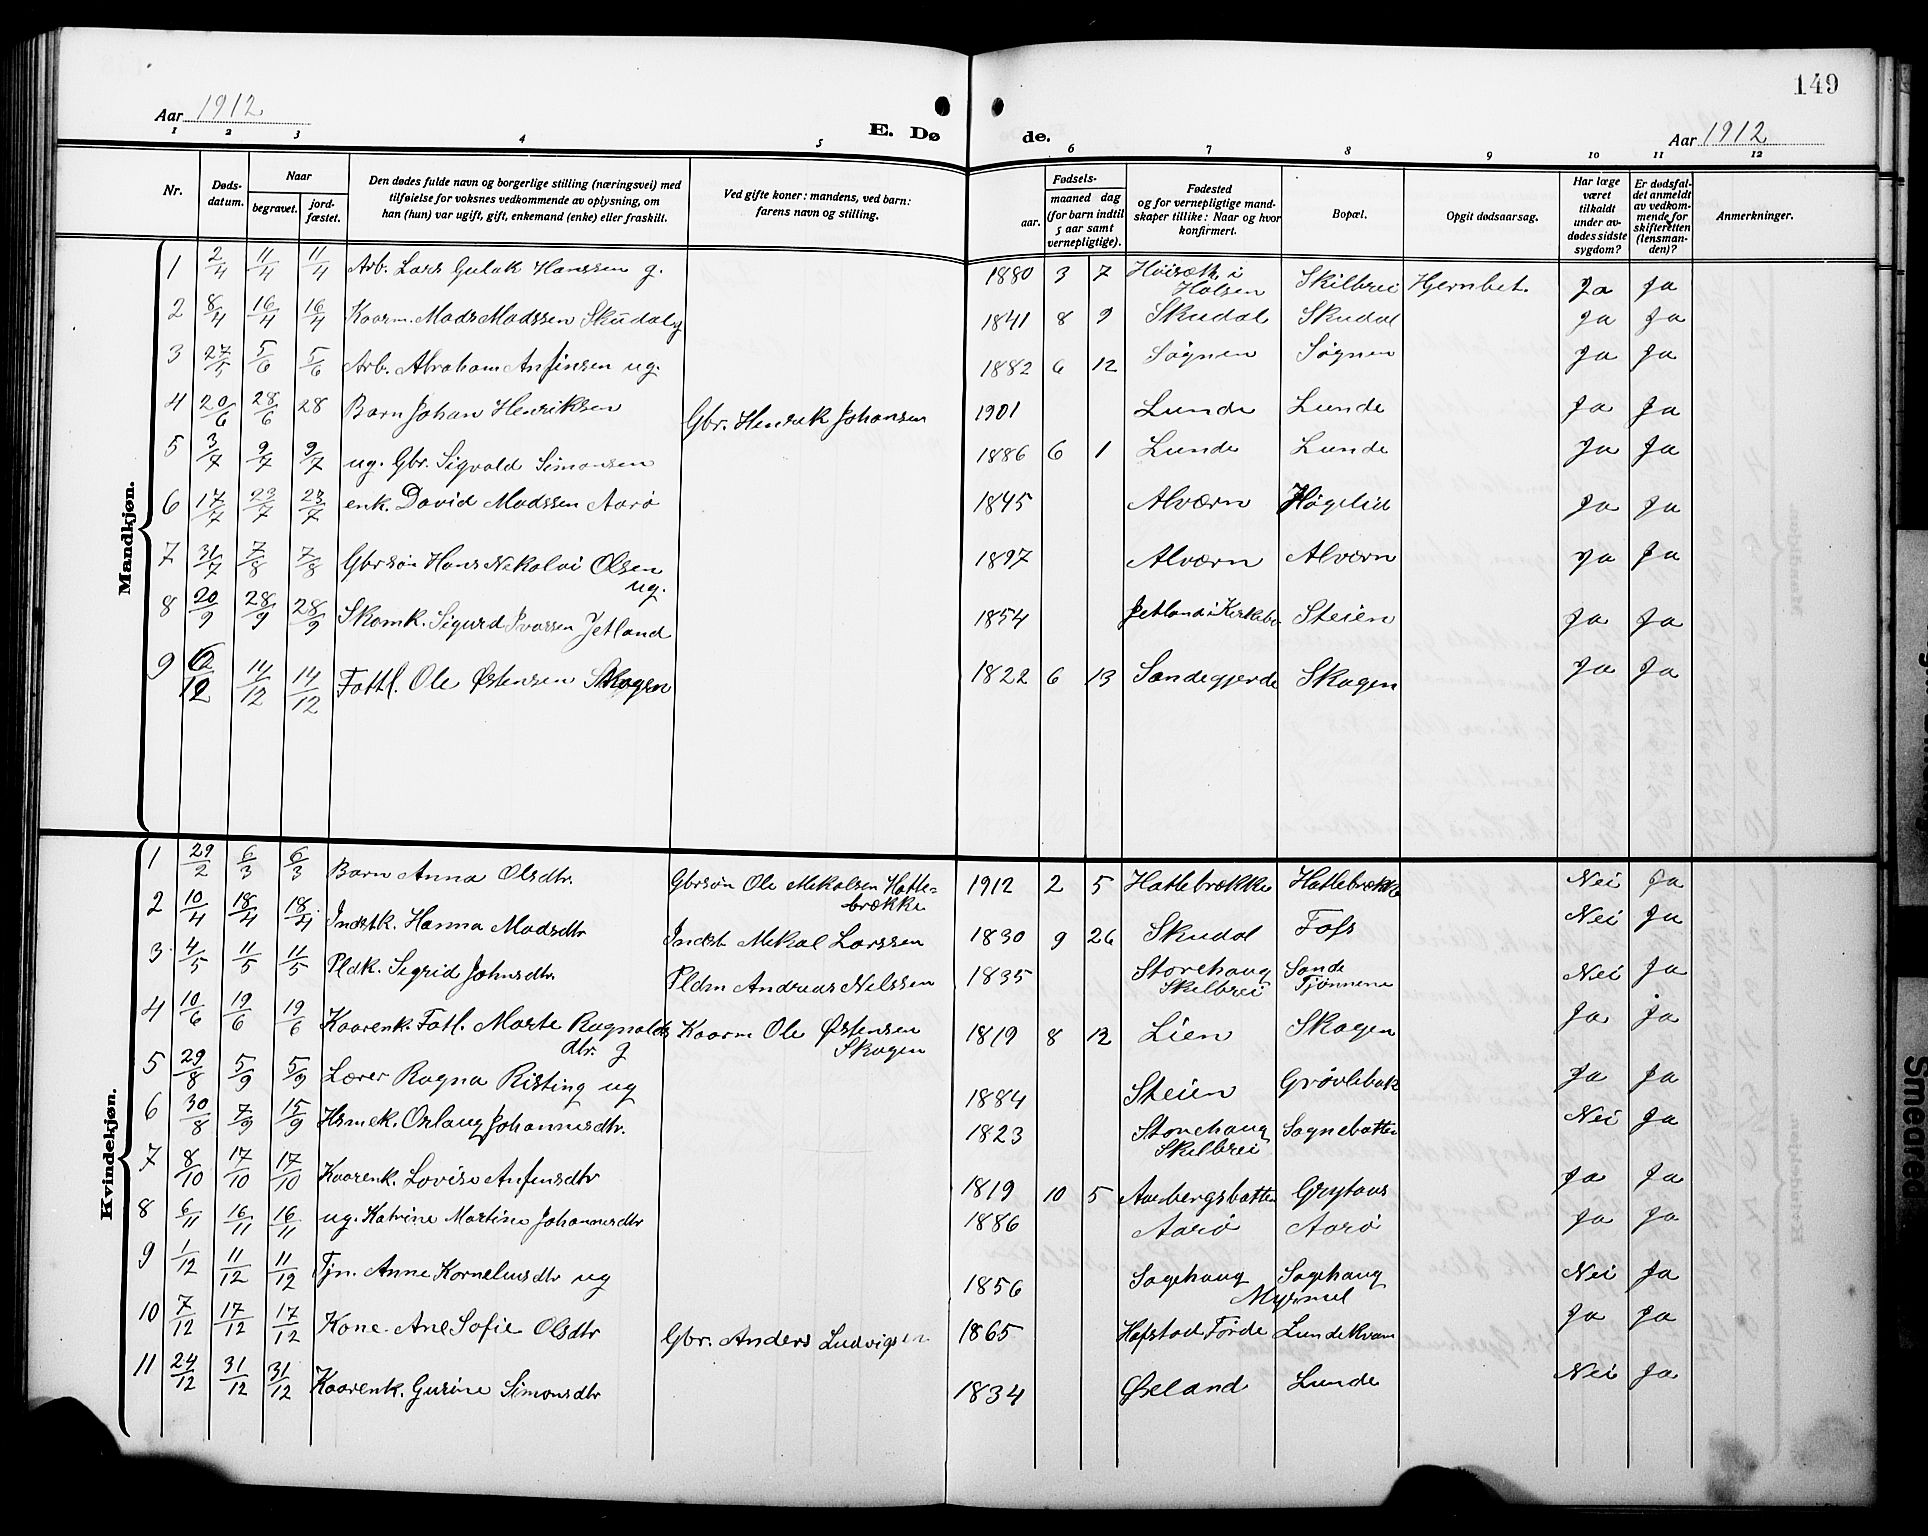 149
Aar 1912
E. Dø de.
Aar 1912
1 2 3 4 5 6 7 8 9 10 11 12
Nr.
Døds-datum.
Naar
begravet.
jord-fæstet.
Den dødes fulde navn og borgerlige stilling (næringsvei) med tilføielse for voksnes vedkommende av oplysning, om han (hun) var ugift, gift, enkemand (enke) eller fraskilt.
Ved gifte koner: mandens, ved barn: farens navn og stilling.
Fødsels-
aar. maaned dag (for barn indtil 5 aar samt vernepligtige).
Fødested og for vernepligtige mand-skaper tillike: Naar og hvor konfirmert.
Bopæl.
Opgit dødsaarsag.
Har læge været tilkaldt under av-dødes sidste sygdom?
Er dødsfal-det anmeldt av vedkom-mende for skifteretten (lensman-den)?
Anmerkninger.
Mandkjøn.
1 2/4 11/4 11/4 Arb. Lars Gulak Hanssen g. 1880 3 7 Høisæth i Holsen Skilbrei Hjernbet. Ja Ja
2 8/4 16/4 16/4 Kaarm. Mads Madssen Skudal g 1841 8 9 Skudal Skudal Ja Ja
3 27/5 5/6 5/6 Arb. Abraham Anfinsen ug. 1882 6 12 Søgnen Søgnen Ja Ja
4 20/6 28/6 28 Barn Johan Henriksen Gbr. Henrik Johansen 1901 Lunde Lunde Ja Ja
5 3/7 9/7 9/7 ug. Gbr. Sigvald Simonsen 1886 6 1 Lunde Lunde Ja Ja
6 17/7 23/7 23/7 enk. David Madssen Aarø 1845 Alværn Høgelid Ja Ja
7 31/7 7/8 7/8 Gbrsøn Hans Nekolai Olsen ug. 1897 Alværn Alværn Ja Ja
8 20/9 28/9 28/9 Skomk. Sigurd Ivarssen Jetland 1854 Jetland i Kirkebø Steien Ja Ja
9 6/12 14/12 14/12 Fattl. Ole Østensen Skogen 1822 6 13 Sandegjerde Skogen Ja Ja
Kvindekjøn.
1 29/2 6/3 6/3 Barn Anna Olsdtr. Gbrsøn Ole Mekalsen Hatle-brække 1912 2 5 Hatlebrække Hatlebrække Nei Ja
2 10/4 18/4 18/4 Indstk. Hanna Madsdtr Indst. Mekal Larssen 1830 9 26 Skudal Fofs Nei Ja
3 4/5 11/5 11/5 Pldk. Sigrid Johnsdtr. Pldm Andreas Nilssen 1835 Storehaug Skilbrei Sande Tjønnene Nei Ja
4 10/6 19/6 19/6 Kaarenk. Fatl. Marte Ragnalds dtr. g Kaarm Ole Østensen Skogen 1819 8 12 Lien Skogen Ja Ja
5 29/8 5/9 5/9 Lærer Ragna Risting ug 1884 Steien Grøvlebak Ja Ja
6 30/8 7/9 15/9 Hsmek. Orlaug Johannesdtr. 1823 Storehaug Skilbrei Sagnebatten Nei Ja
7 8/10 17/10 17/10 Kaarenk. Lovise Anfinsdtr 1819 10 5 Aarbergsbatten Grytaas Ja Ja
8 6/11 16/11 16/11 ug. Katrine Martine Johannesdtr 1886 Aarø Aarø Ja Ja
9 1/12 11/12 11/12 Tjn. Anne Kornelusdtr ug 1856 Sagehaug Sagehaug Myrmel Nei Ja
10 7/12 17/12 17/12 Kone Ane Sofie Olsdtr Gbr. Anders Ludvigsen 1865 Hafstad Førde Lundekvam Ja Ja
11 24/12 31/12 31/12 Kaarenk. Gurine Simonsdtr 1834 Øseland Lunde Nei Ja
Smeared